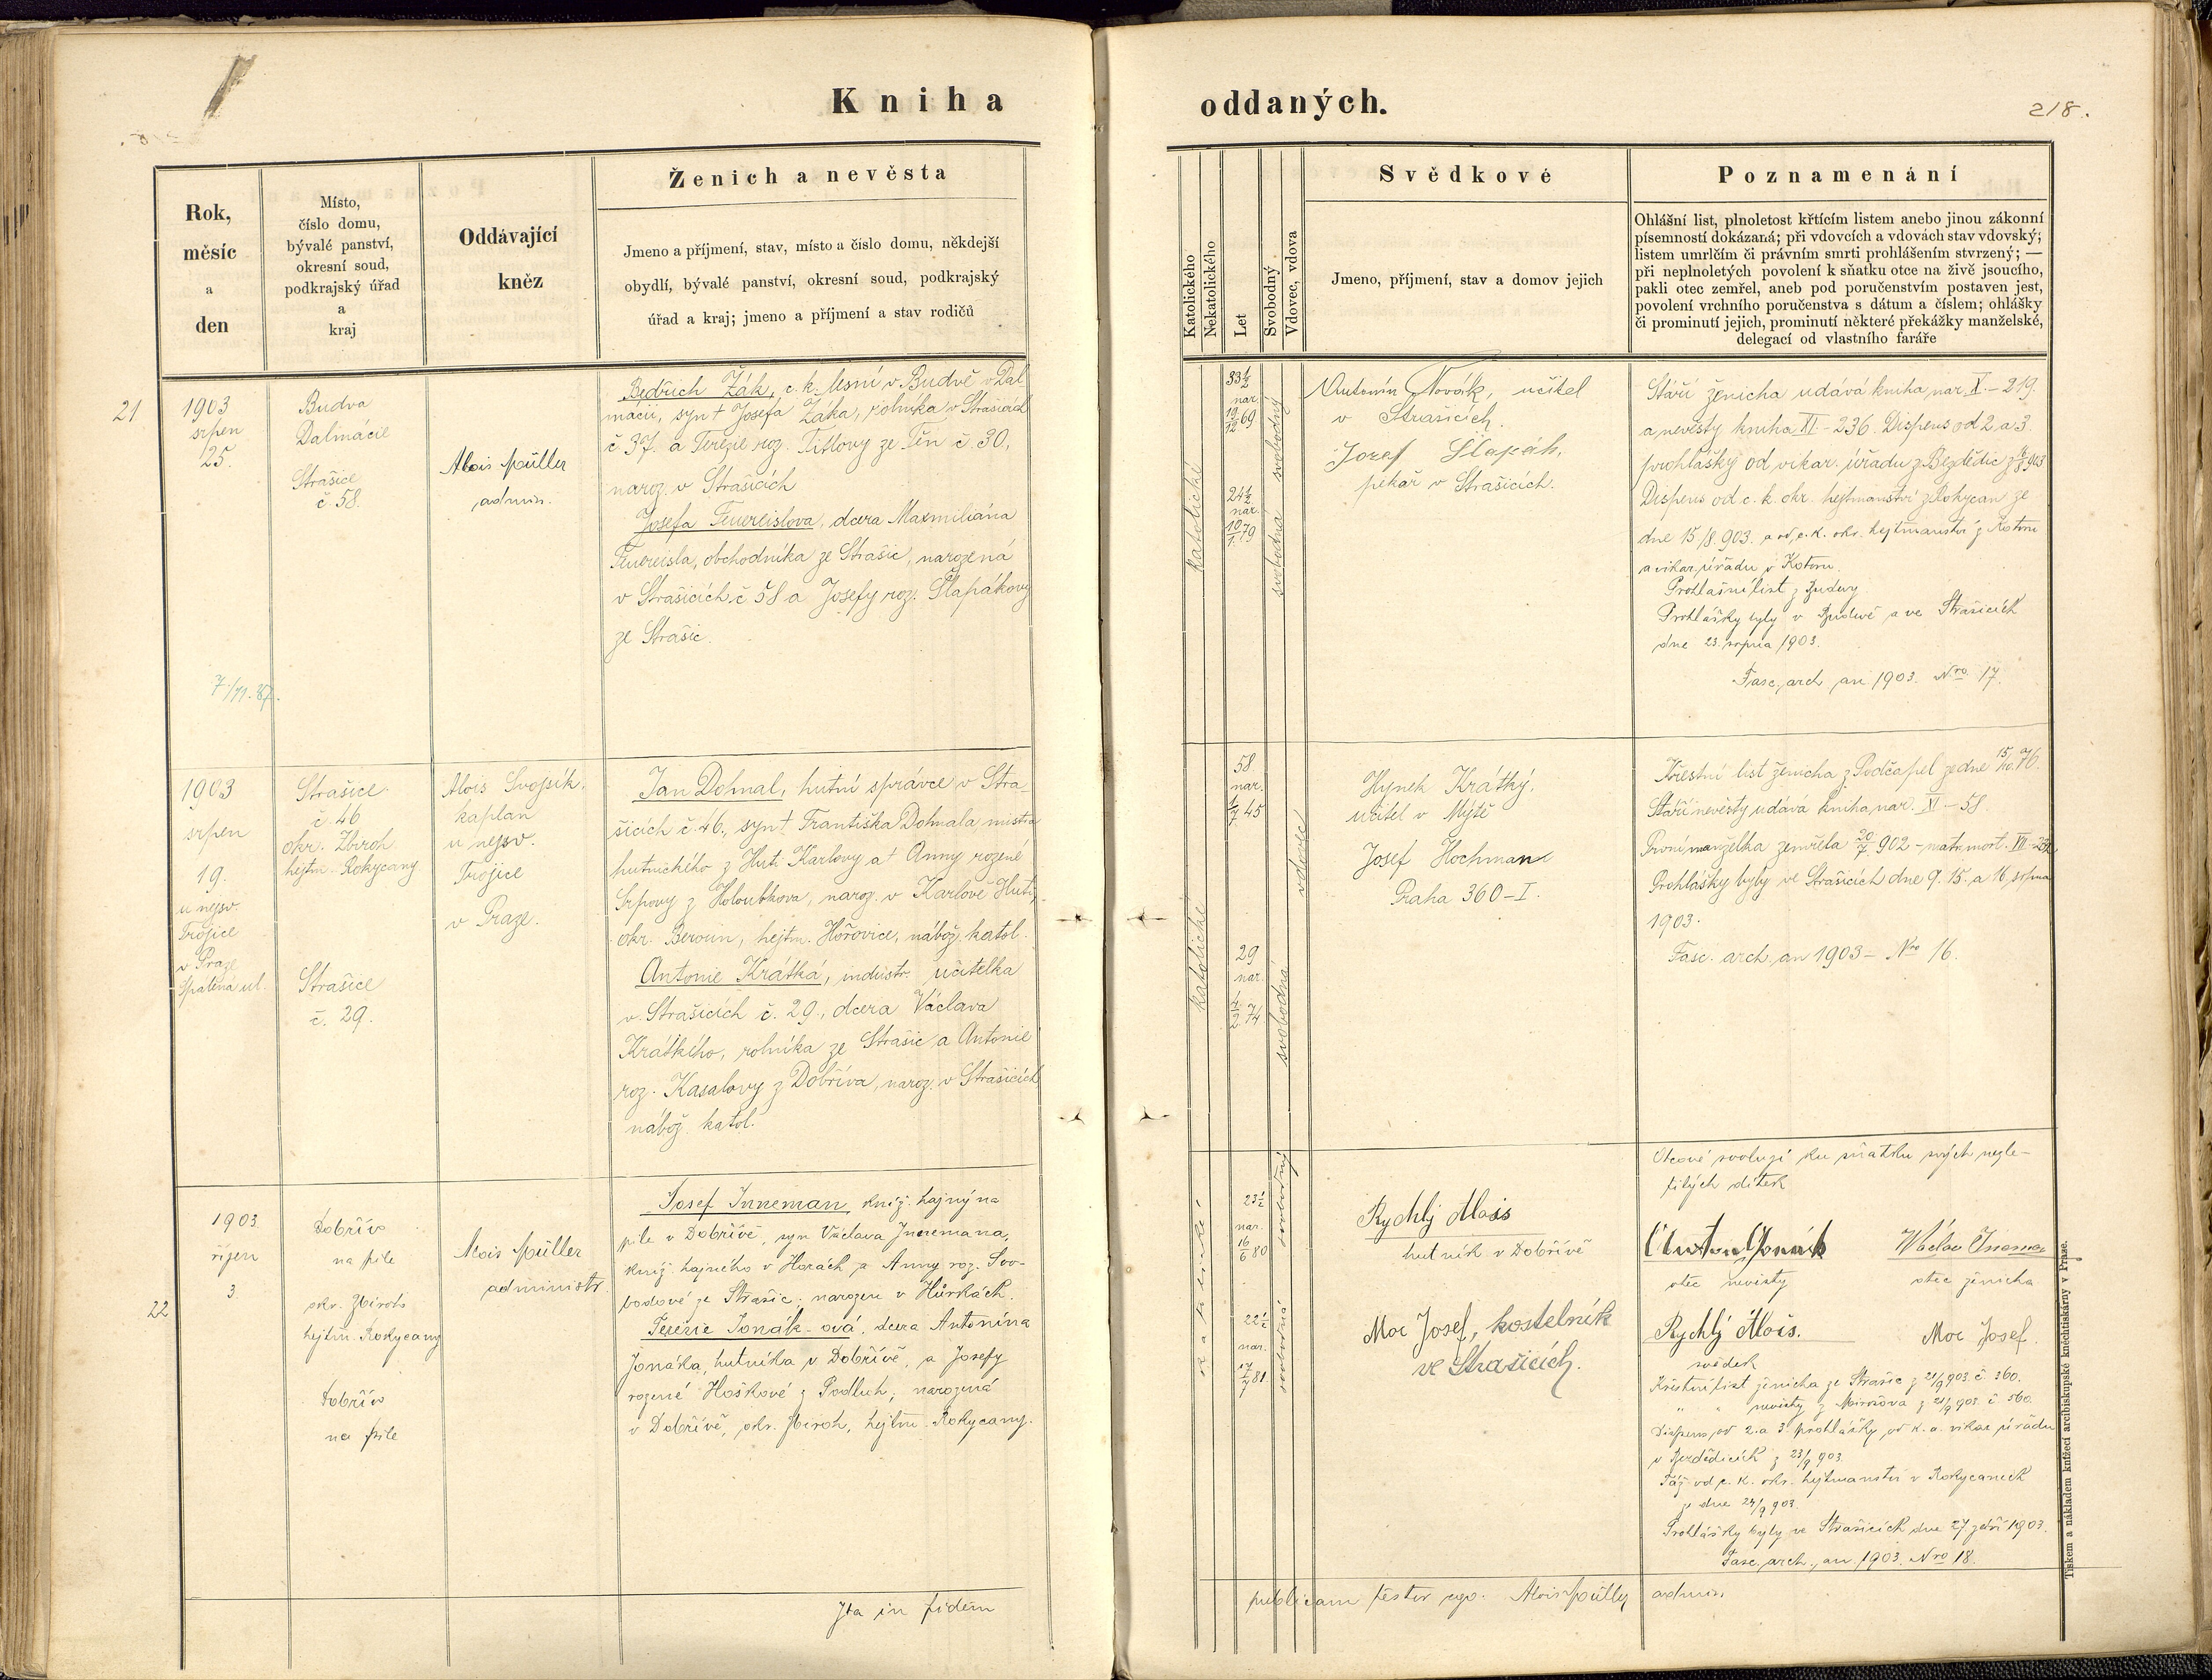 Kniha
oddaných.
218.
Rok,
měsíc
a
den
Místo,
číslo domu,
bývalé panství,
okresní soud,
podkrajský úřad
a
kraj
Oddávající
kněz
Ženich a nevěsta
Jmeno a příjmení, stav, místo a číslo domu, někdejší
obydlí, bývalé panství, okresní soud, podkrajský
úřad a kraj; jmeno a příjmení a stav rodičů
Katolického
Nekatolického
Let
Svobodný
Vdovec, vdova
Svědkové
Jmeno, příjmení, stav a domov jejich
Poznamenání
Ohlášní list, plnoletost křtícím listem anebo jinou zákonní
písemností dokázaná; při vdovcích a vdovách stav vdovský;
listem umrlčím či právním smrti prohlášením stvrzený; —
při neplnoletých povolení k sňatku otce na živě jsoucího,
pakli otec zemřel, aneb pod poručenstvím postaven jest,
povolení vrchního poručenstva s dátum a číslem; ohlášky
či prominutí jejich, prominutí některé překážky manželské,
delegací od vlastního faráře
21
1903
srpen
25.
7./11.37.
Budva
Dalmácie
Strašice
č. 58.
Alois Müller
admin.
Bedřich Žák, c. k. lesní v Budvě v Dal
macii, syn † Josefa Žáka, rolníka v Strašicích
č. 37. a Terezie roz. Tittlovy ze Těn č. 30,
naroz. v Strašicích
Josefa Feuereislova, dcera Maxmiliána
Feuereisla, obchodníka ze Strašic, narozená
v Strašicích č 58 a Josefy roz. Šlapákovy
ze Strašic.
katolické
33½
nar.
19/12 69
svobodný
24½
nar.
10/1. 79
svobodná
Antonín Novák, učitel
v Strašicích.
Josef Šlapák,
pekař v Strašicích.
Stáří ženicha udává kniha nar. X. – 219.
a nevěsty kniha XI – 236. Dispens od 2 a 3.
prohlášky od vikar. úřadu z Bezdědic z 903
Dispens od c. k. okr. hejtmanství z Rokycan ze
dne 15/8. 903. a od c. k. okr. hejtmanství z Kotoru
a vikar. úřadu v Kotoru.
Prohlašní list z Budvy
Prohlášky byly v Budvě a ve Strašicích
dne 23. srpna 1903.
Fasc. arch an 1903. Nro 17.
1903
srpen
19.
u nejsv.
Trojice
v Praze
Spálená ul.
Strašice
č. 46
okr. Zbiroh
hejtm. Rokycany
Strašice
č. 29.
Alois Svojsík.
kaplan
u nejsv.
Trojice
v Praze.
Jan Dohnal, hutní správce v Stra-
šicích č. 46., syn † Františka Dohnala mistra
hutnického z Huti Karlovy a † Anny rozené
Srpovy z Holoubkova, naroz. v Karlově Huti,
okr. Beroun, hejtm. Hořovice, nábož. katol.
Antonie Krátká, industr. učitelka
v Strašicích č. 29., dcera Václava
Krátkého, rolníka ze Strašic a Antonie
roz. Kasalovy z Dobříva, naroz. v Strašicích,
nábož. katol.
katolické
58.
nar.
1/7. 45
vdovec
29
nar.
4/2. 74
svobodná
Hynek Krátký.
učitel v Mýtě
Josef Hochman
Praha 360–I.
Křestní list ženicha z Podčapel ze dne 15/10. 76.
Stáří nevěsty udává kniha nar. XI – 58
První manželka zemřela 20/7. 902 – matr. mort. VII –
Prohlášky byly ve Strašicích dne 9. 15. a 16 srpna
1903.
Fasc. arch. an 1903 – Nro 16.
22
1903.
říjen
3.
Dobřív
na pile
okr. Zbiroh
hejtm. Rokycany
Dobřív
na pile
Alois Müller
administr.
Josef Inneman, kníž. hajný na
pile v Dobřívě, syn Václava Innemana,
kníž. hajného v Horách a Anny roz. Svo-
bodové ze Strašic, narozen v Hůrkách.
Terezie Jonák-ová, dcera Antonína
Jonáka, hutníka v Dobřívě, a Josefy
rozené Hoškové z Podluh, narozená
v Dobřívě, okr. Zbiroh, hejtm. Rokycany.
katolické
23½
nar.
16/6 80
svobodný
22½
nar.
17/7 81
svobodná
Rychlý Alois
hutník v Dobřívě
Moc Josef, kostelník
ve Strašicích.
Otcové svolují ku sňatku svých nezle-
tilých dítek
Anton Jonák
Václav Inneman
otec nevěsty
otec ženicha
Rychlý Alois.
Moc Josef.
svědek
Křestní list ženicha ze Strašic z 21/9 903. č. 360.
" " nevěsty z Mirošova z 21/9 903. č 560.
Dispens od 2. a 3. prohlášky od k. a. vikar. úřadu
v Bezdědicích z 23/9 903.
Táž od c. k. okr. hejtmanství v Rokycanech
ze dne 24/9 903.
Prohlášky byly ve Strašicích dne 27. září 1903.
Fasc. arch. an 1903. Nro 18.
Ita in fidem
publicam testor ego. Alois Müller admin.
Tiskem a nákladem knížecí arcibiskupské knihtiskárny v Praze.